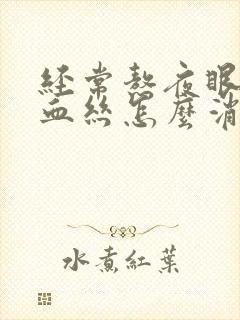 經常熬夜眼
血絲怎麼消
水煮紅葉